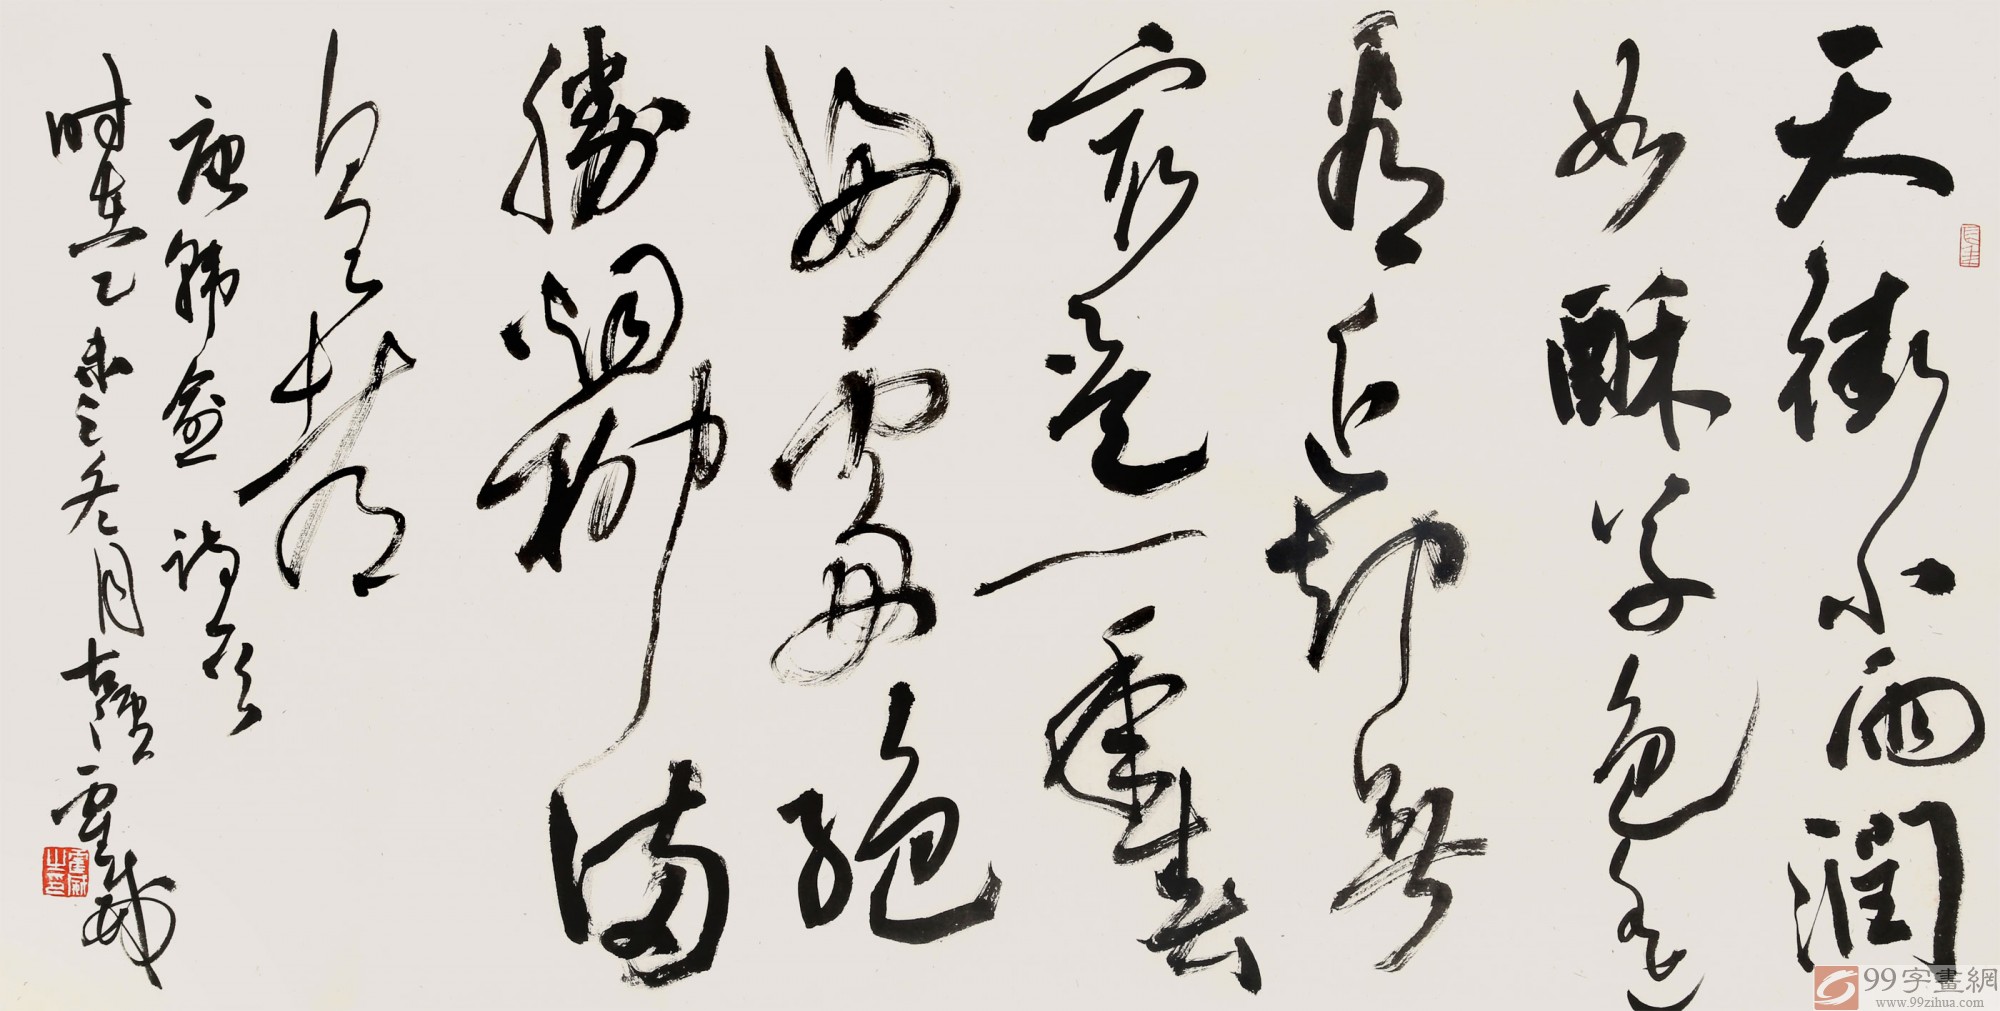 天街小雨润
如酥草色遥
看近却無
最是一年春
好處绝
勝烟柳满
皇都
唐韩愈诗
时在乙未之冬月古 霍
99字畫網
www.99zihua.com